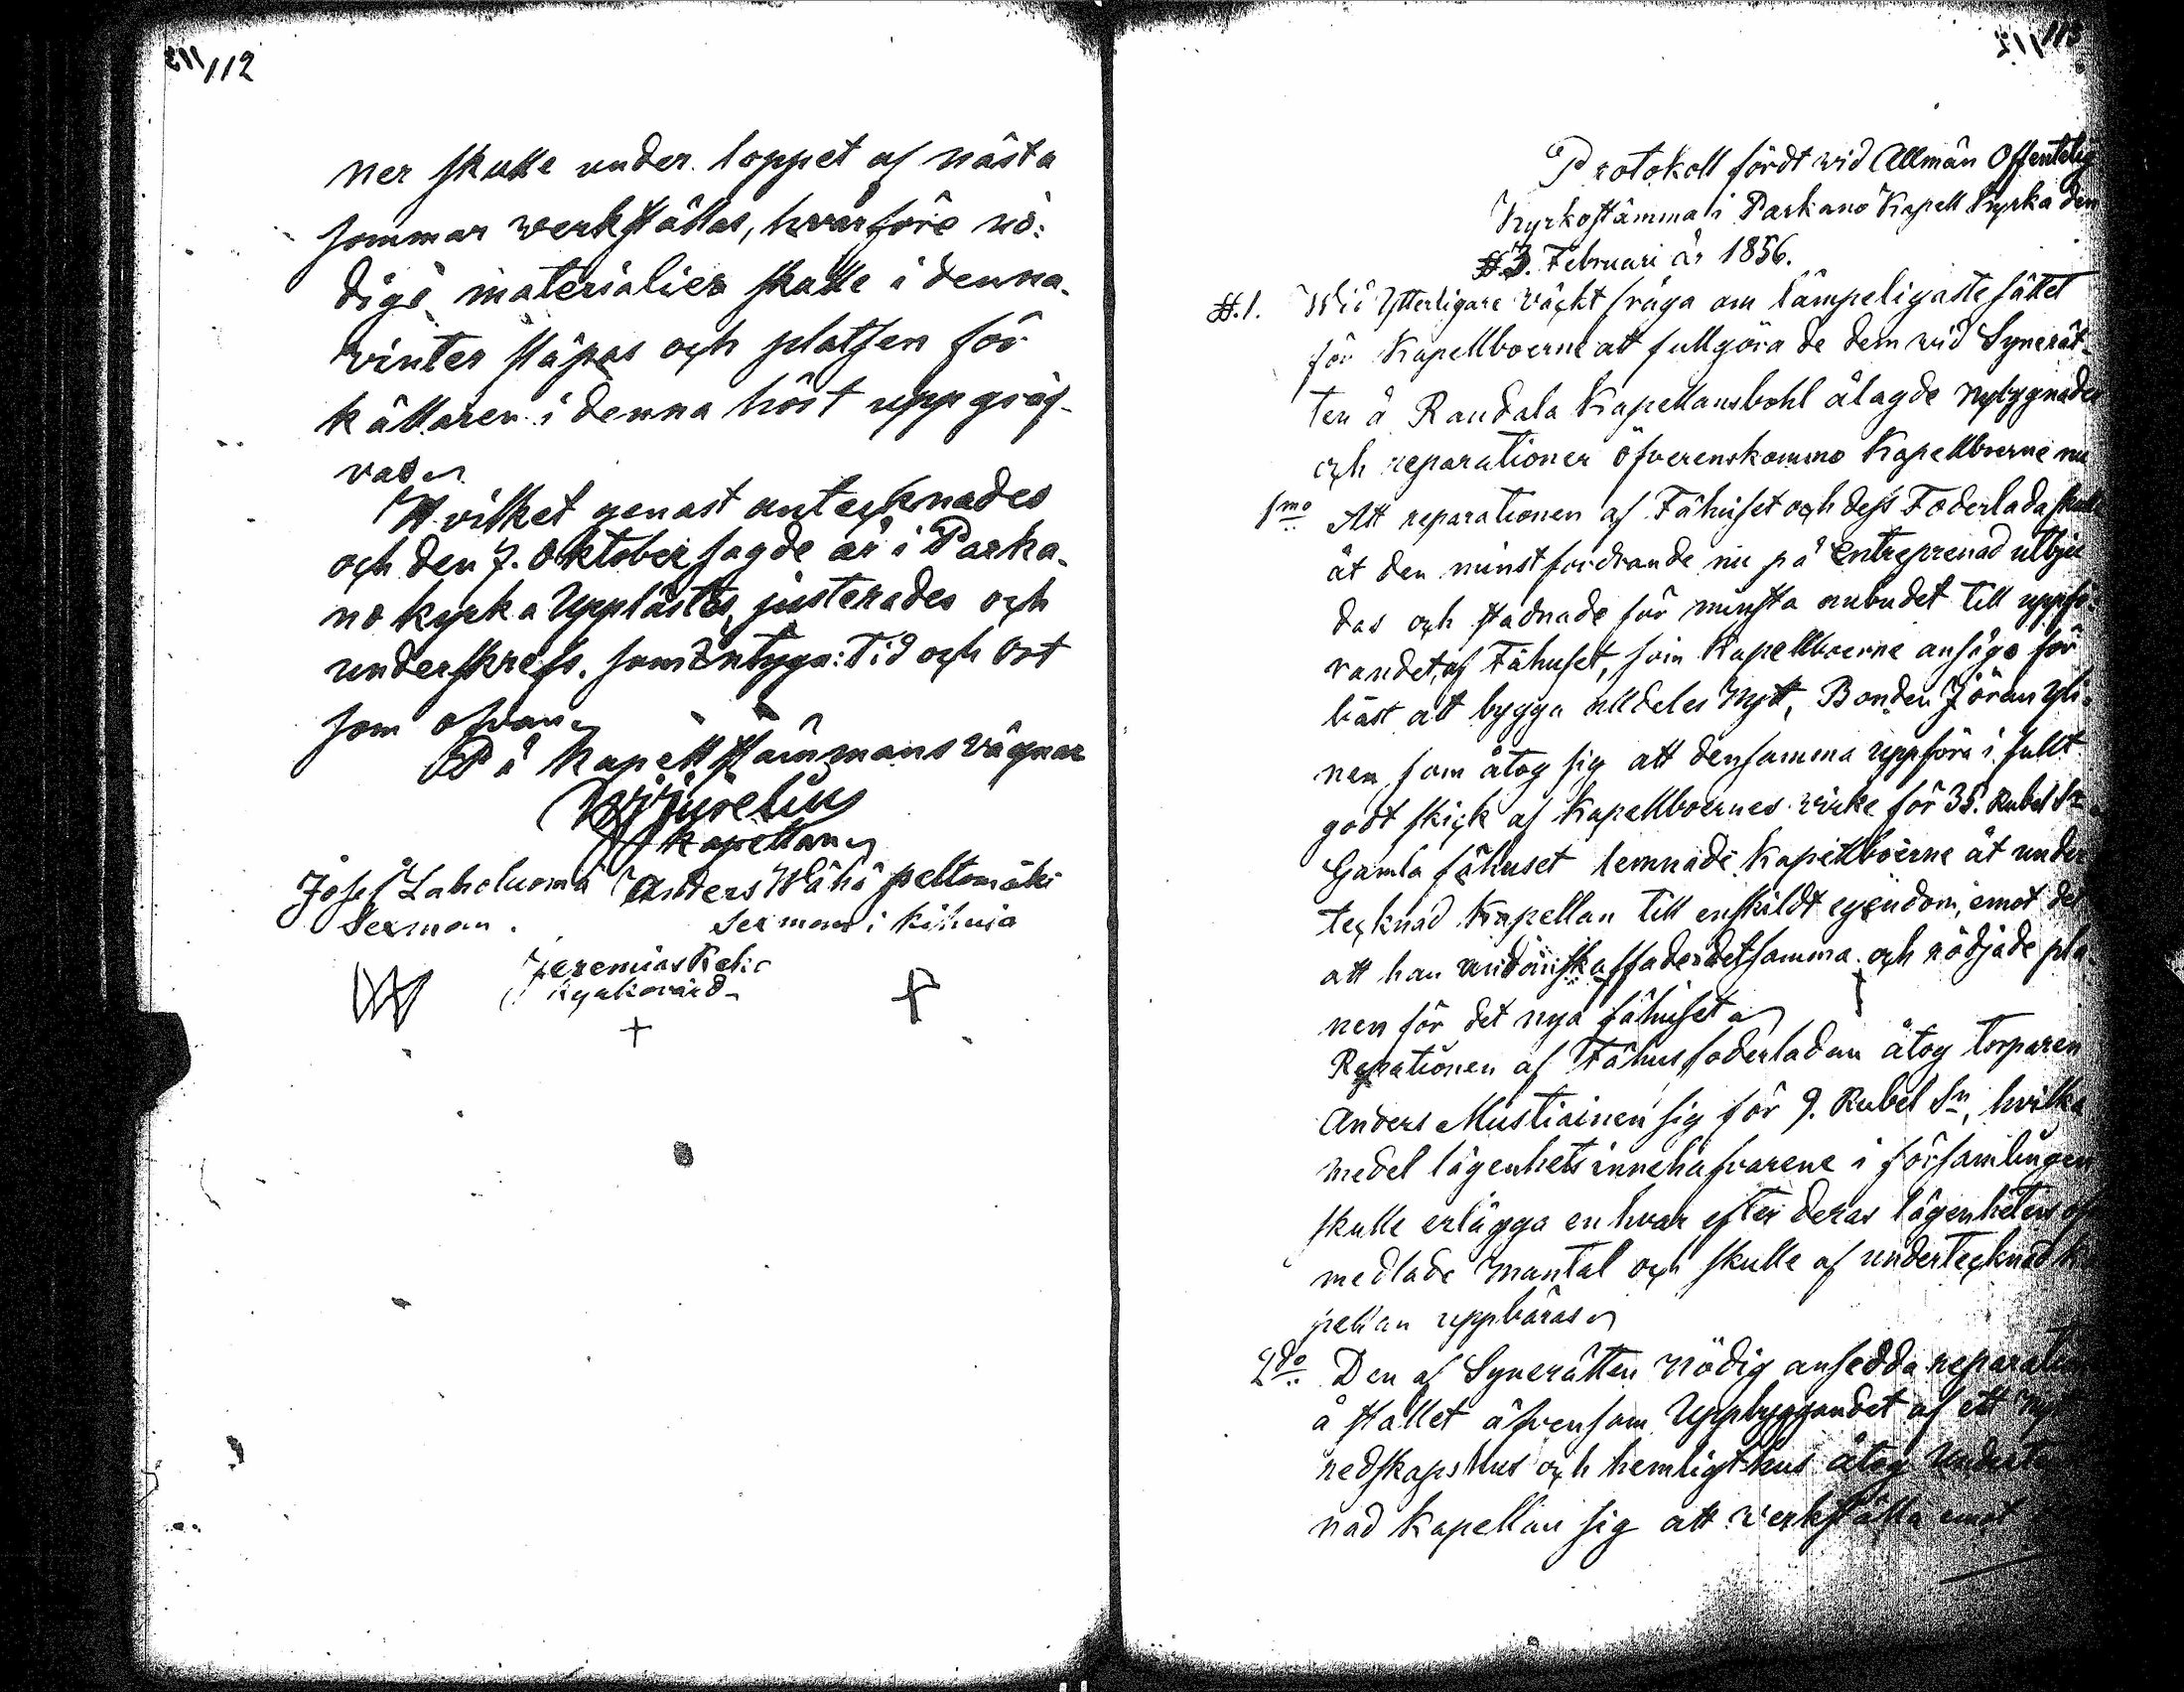 112
ner skulle under loppet af nästa
sommar werkställas, hvarföre nö:
dige materialier skulle i denna
vinter släpas och platsen för
källaren i denna höst uppgräf-
vas.
Hvilket genast antecknades
och den 7. Oktober sagde år i Parka-
no kyrka Upplästes, justerades och
underskrefs, som intyga: Tid och Ort
som ofvan
På Kapellstämmans vägnar
Kapellan
Josef Laholuoma Anders Wähä peltomäki
Sexman. Sexman i Kihniä
Jeremias
Kyrkovärd
113
Protokoll fördt wid Allmän Offentelig
Kyrkostämma i Parkano Kapell Kyrka den
3. Februari år 1856.
§.1. Wid Ytterligare väckt fråga om lämpeligaste sättet
för Kapellboerne att fullgöra de dem wid Synerät-
ten å Raudala Kapellansbohl ålagde nybyggnader
och reparationer öfverenskommo Kapellboerne nu
1mo Att reparationen af Fähuset och dess Foderlada skulle
åt den minst fordrande nu på Entreprenad utbju
das och stadnade för minsta anbudet till uppfö:
randet af Fähuset, som Kapellboerne ansågo för
bäst att bygga alldeles Nytt, Bonden Jöran Yli:
nen, som åtog sig att densamma uppföra i fullt
godt skick af Kapellboernes virke för 35. Rubel Sr
Gamla fähuset lemnade Kapellboerne åt under
tecknad Kapellan till enskildt egendom, emot det
att han undanskaffade detsamma och rödjade pla
nen för det nya fähuset
Reparationen af Fähusfoderladan åtog torparen
Anders Mustiainen sig för 9. Rubel Sr, hvilka
medel lägenhetsinnehafvarene i församlingen
skulle erlägga en hvar efter deras lägenheters
medlade mantal och skulle af undertecknad Ka
pellan uppbäras
2do Den af Synerätten Nödig ansedda reparation
å stallet äfvensom Uppbyggandet af ett nytt
redskapshus och hemligt hus åtog Underteck
nad Kapellan sig att verkställa emot